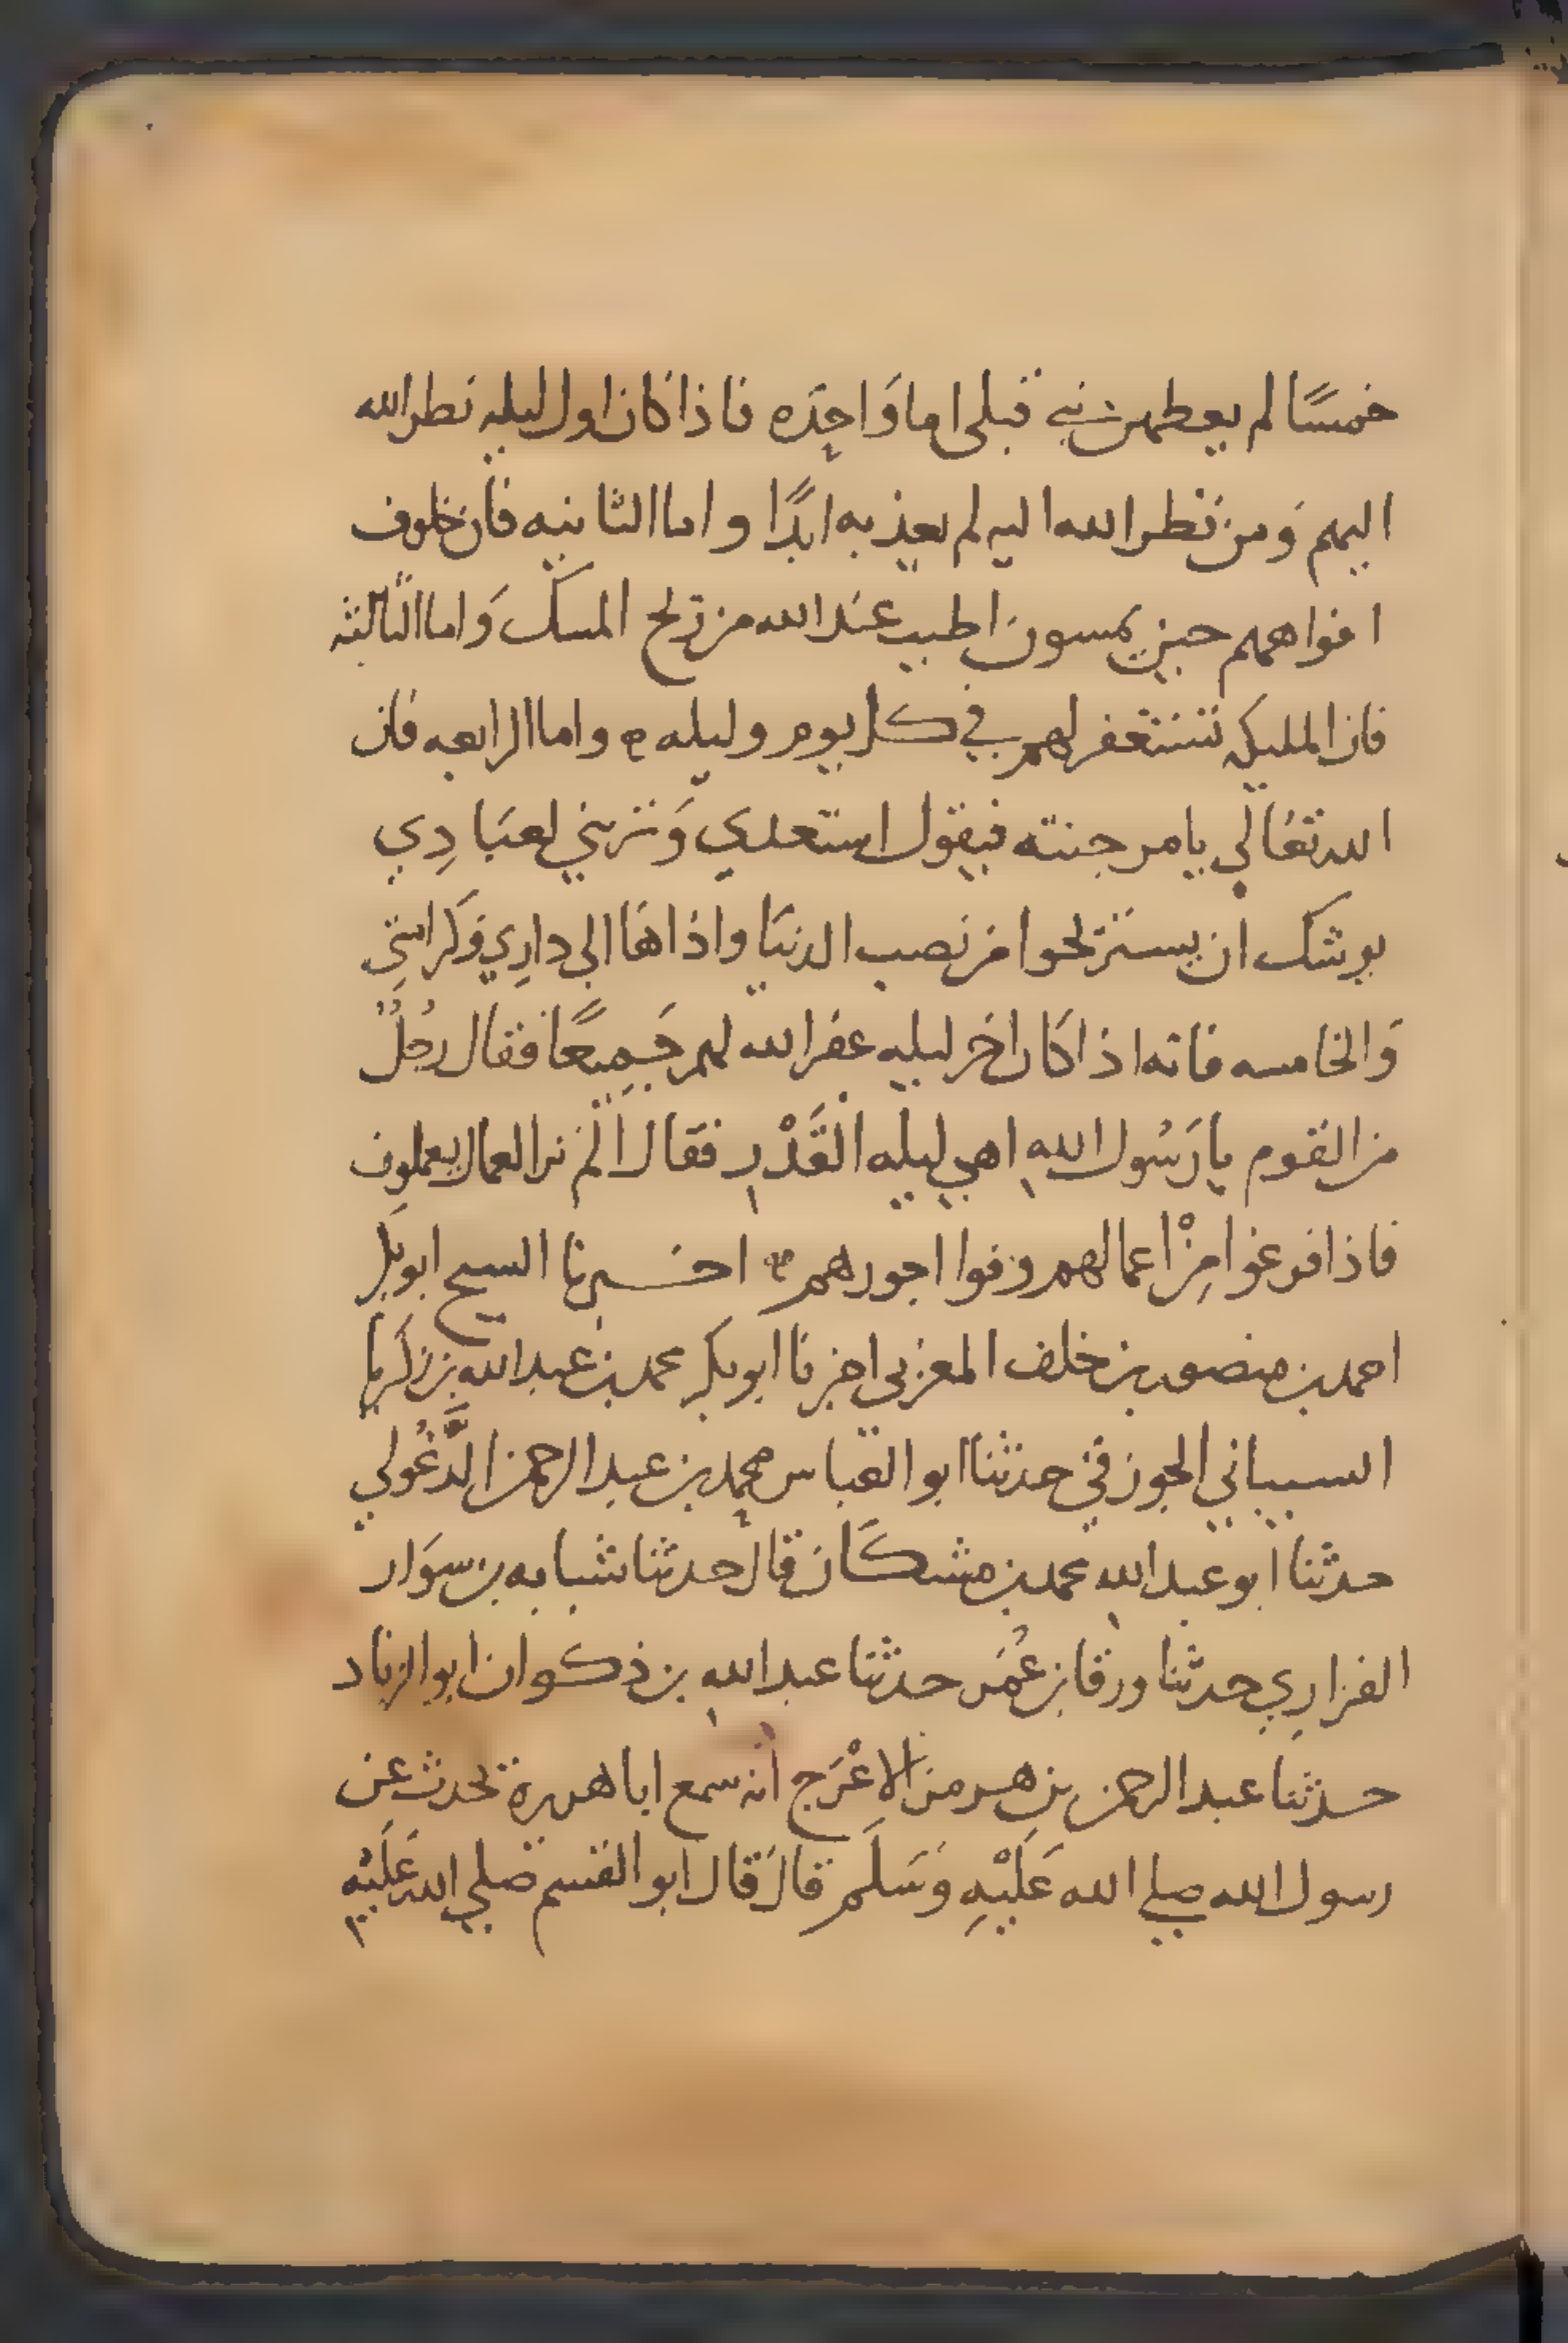 خمسًا لم يعطهن نبي قبلي اما وَاحِدَه فاذا كان اول ليله نظر الله
اليهم وَمن نَظر الله اليه لم يعذبه ابدًا واما الثانيه فان خلوف
افواههم حين يمسون اطيب عند الله من ريح المسك وَاما الثالثه
فان المليكه تستغفر لهم في كل يوم وليله ه واما الرابعه فان
الله تعَالي يامر جنته فيقول استعدي وَتزيني لعبَادِي
يوشك ان يستريحوا من نصب الدنيَا واذاهَا الي دارِي وَكرامتِي
وَالخامسه فانه اذا كَان اخر ليله غفر الله لهم جَمِيعًا فقال رجُلٌ
من القوم يا رَسُول اللهِ اهي ليله القَدْرِ فقال الَم تر العمال يعملون
فاذا فرغوا مِنْ اعمالهم وفوا اجورهم ه اخبرنا الشيخ ابو بَكر
احمد بن منصور بن خلف المغربي اخبرنا ابو بكر محمد بن عبد الله بن زكَريا
السيباني الجوزقي حدثنا ابو العباس محمد بن عبد الرحمن الدَّغُولي
حدثنا ابو عبد اللهِ محمد بن مشكَان قال حدثنا شبابه بن سوَار
الفزارِي حدثنا ورقا بن عُمَر حدثنا عبد اللهِ بن ذكوان ابو الزناد
حدثنا عبد الرحمن بن هرمز الاعْرَج أنه سمع ابا هريرة يحدث عن
رسول الله صلي الله عَلَيْهِ وَسَلَم قال قال ابو القسم صلي الله عَلَيْهِ